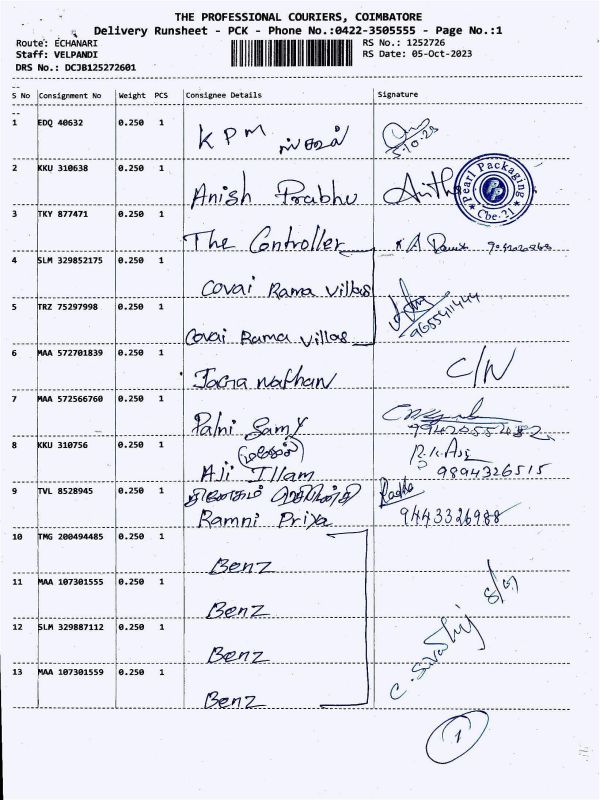 THE PROFESSIONAL COURIERS, COIMBATORE
Delivery Runsheet - PCK - Phone No.:0422-3505555 - Page No.:1
Route: ECHANARI RS No.: 1252726
Staff: VELPANDI RS Date: 05-Oct-2023
DRS No.: DCJB125272601
S No Consignment No Weight PCS Consignee Details Signature
1 EDQ 40632 0.250 1 KPM
5.10.23
2 KKU 310638 0.250 1 Anish Prabhu Anitha
Pearl Packaging
PP
Cbe-21
3 TKY 877471 0.250 1 The Controller
4 SLM 329852175 0.250 1 Covai Rama Villas
5 TRZ 75297998 0.250 1 Covai Rama Villas 9655411444
6 MAA 572701839 0.250 1 Jaganathan C/N
7 MAA 572566760 0.250 1 Palni Samy
8 KKU 310756 0.250 1 Aji Illam 9894326515
9 TVL 8528945 0.250 1 Ramni Priya Radha
9443326988
10 TMG 200494485 0.250 1 Benz
11 MAA 107301555 0.250 1 Benz
12 SLM 329887112 0.250 1 Benz
13 MAA 107301559 0.250 1 Benz
1